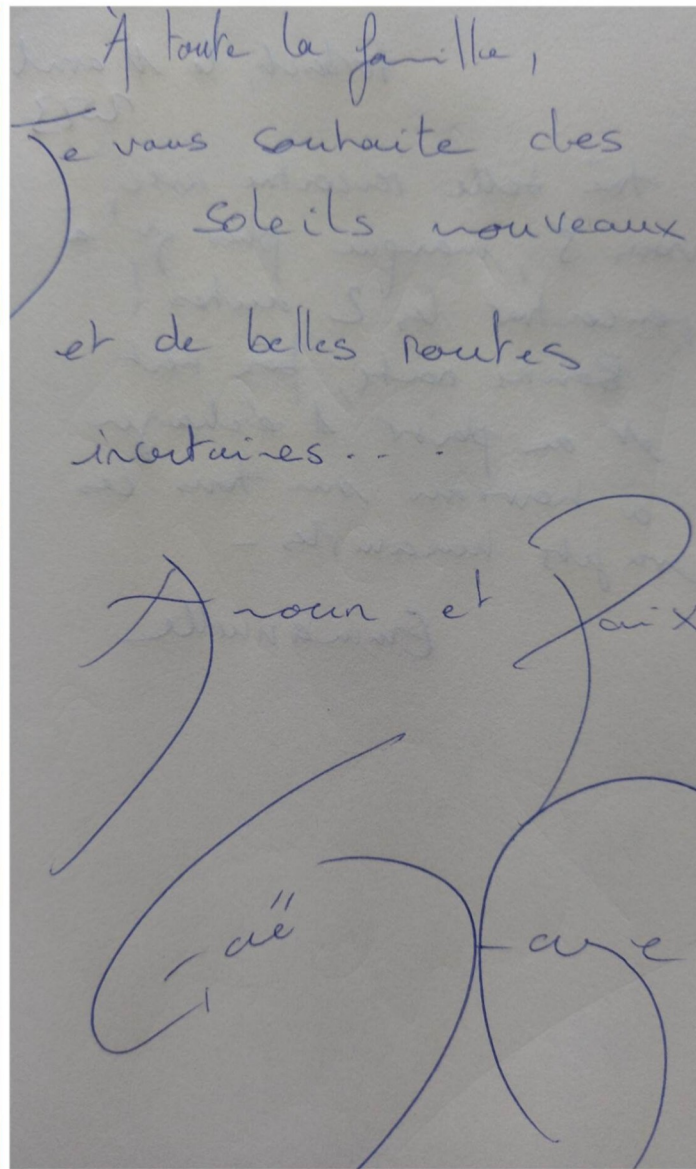 À toute la famille,
Je vous souhaite des
soleils nouveaux
et de belles routes
incertaines....
Amour et Paix